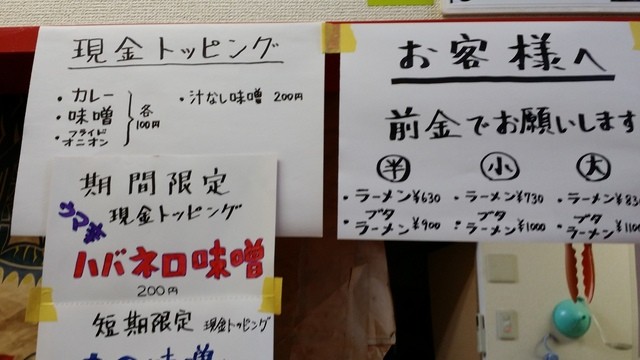 現金トッピング
・カレー
・味噌
・フライドオニオン
各100円
・汁なし味噌 200円
期間限定
現金トッピング
ハバネロ味噌
200円
短期限定 現金トッピング
お客様へ
前金でお願いします
半 小 大
・ラーメン¥630 ・ラーメン¥730 ・ラーメン¥830
・ブタラーメン¥900 ・ブタラーメン¥1000 ・ブタラーメン¥1100